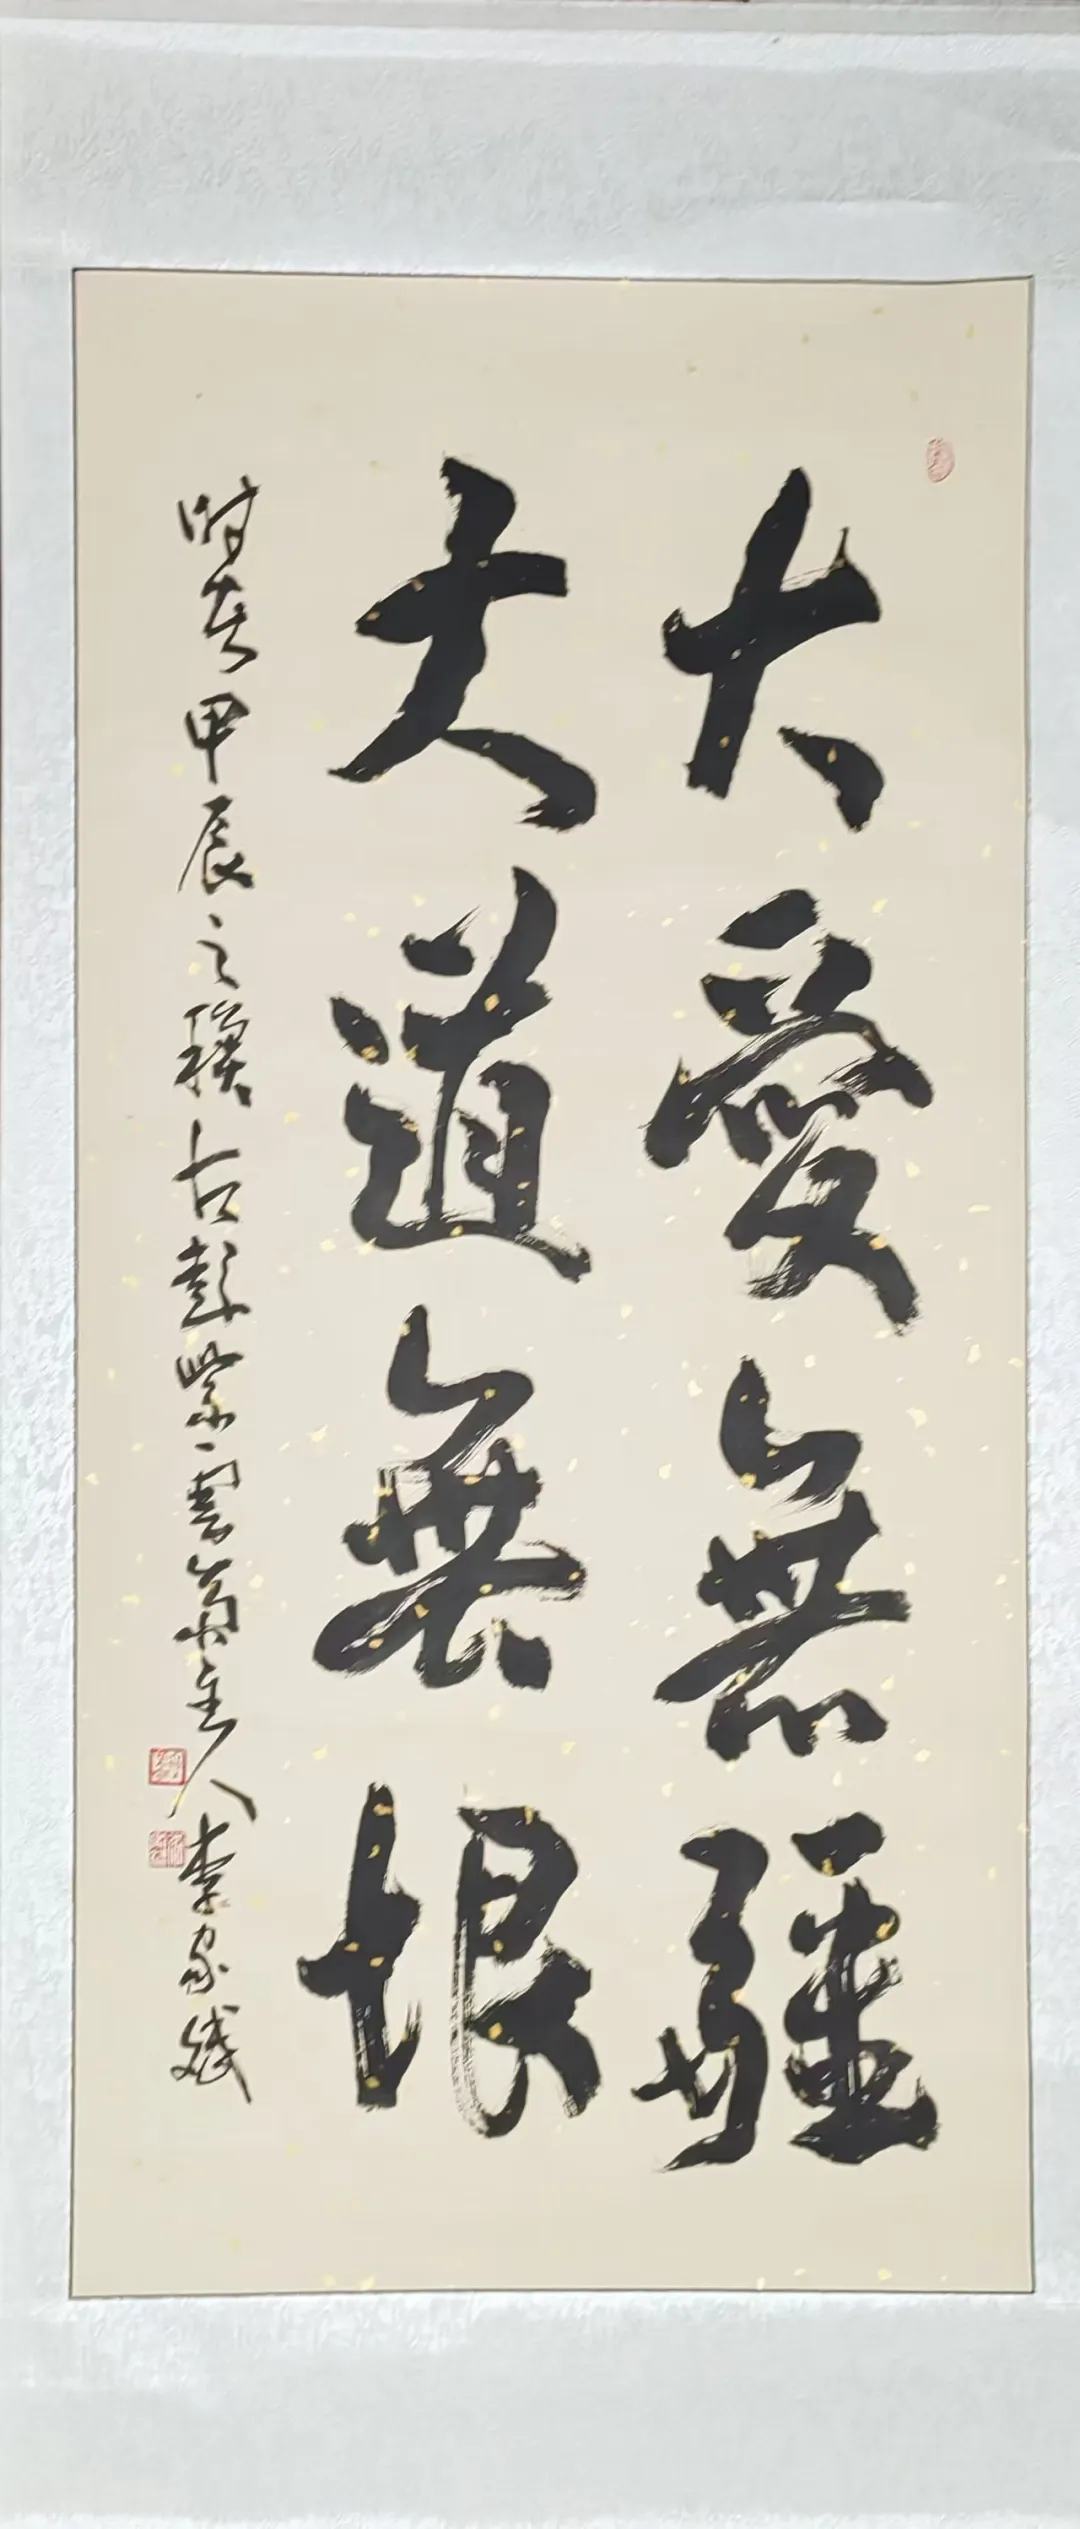 大愛無疆
大道無垠
時在甲辰之穐古彭紫雲齋主人李家斌